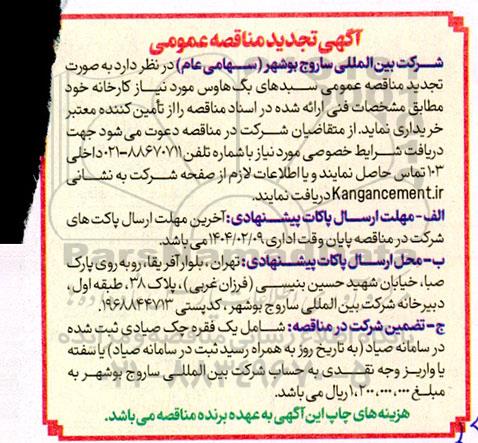 آگهی تجدید مناقصه عمومی
شرکت بین المللی ساروج بوشهر (سهامی عام) در نظر دارد به صورت
تجدید مناقصه عمومی سبدهای بگ هاوس مورد نیاز کارخانه خود
مطابق مشخصات فنی ارائه شده در اسناد مناقصه را از تأمین کننده معتبر
خریداری نماید. از متقاضیان شرکت در مناقصه دعوت می شود جهت
دریافت شرایط خصوصی مورد نیاز با شماره تلفن ۸۸۶۷۰۷۱۱-۰۲۱ داخلی
۱۰۳ تماس حاصل نمایند و یا اطلاعات لازم از صفحه شرکت به نشانی
Kangancement.ir دریافت نمایند.
الف- مهلت ارسال پاکات پیشنهادی: آخرین مهلت ارسال پاکت های
شرکت در مناقصه پایان وقت اداری ۱۴۰۴/۰۲/۰۹ می باشد.
ب- محل ارسال پاکات پیشنهادی: تهران، بلوار آفریقا، روبه روی پارک
صبا، خیابان شهید حسین بنیسی (فرزان غربی)، پلاک ۳۸، طبقه اول،
دبیرخانه شرکت بین المللی ساروج بوشهر، کدپستی ۱۹۶۸۸۴۴۷۱۳.
ج- تضمین شرکت در مناقصه: شامل یک فقره چک صیادی ثبت شده
در سامانه صیاد (به تاریخ روز به همراه رسید ثبت در سامانه صیاد) یا سفته
یا واریز وجه نقدی به حساب شرکت بین المللی ساروج بوشهر به
مبلغ ۱,۲۰۰,۰۰۰,۰۰۰ ریال می باشد.
هزینه های چاپ این آگهی به عهده برنده مناقصه می باشد.